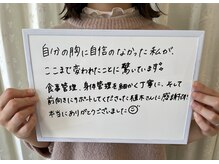 自分の胸に自信のなかった私が、
ここまで変われたことに驚いています。
食事管理、身体管理を細かく丁寧に、そして
前向きにサポートしてくださった植木さんに感謝です!
本当にありがとうございました